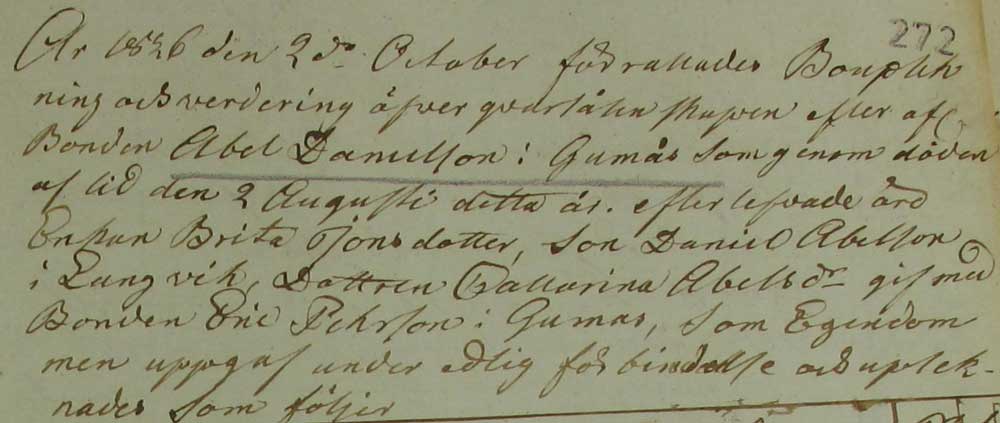 272
År 1826 den 2dn October förrattades Boupteh
ning och verdering öfver qvarlåtenskapen efter afl
Bonden Abel Danielson i Gumås som genom döden
af lid den 2 Augusti detta år. efterlefvade äro
Enkan Brita Jonsdotter, Son Daniel Abelson
i Langvik, Dottren Cattarina Abelsdr gif med
Bonden Eric Pehrson i Gumås, som Egendom
men uppgaf under edlig förbindelse och uptek-
nades som följer